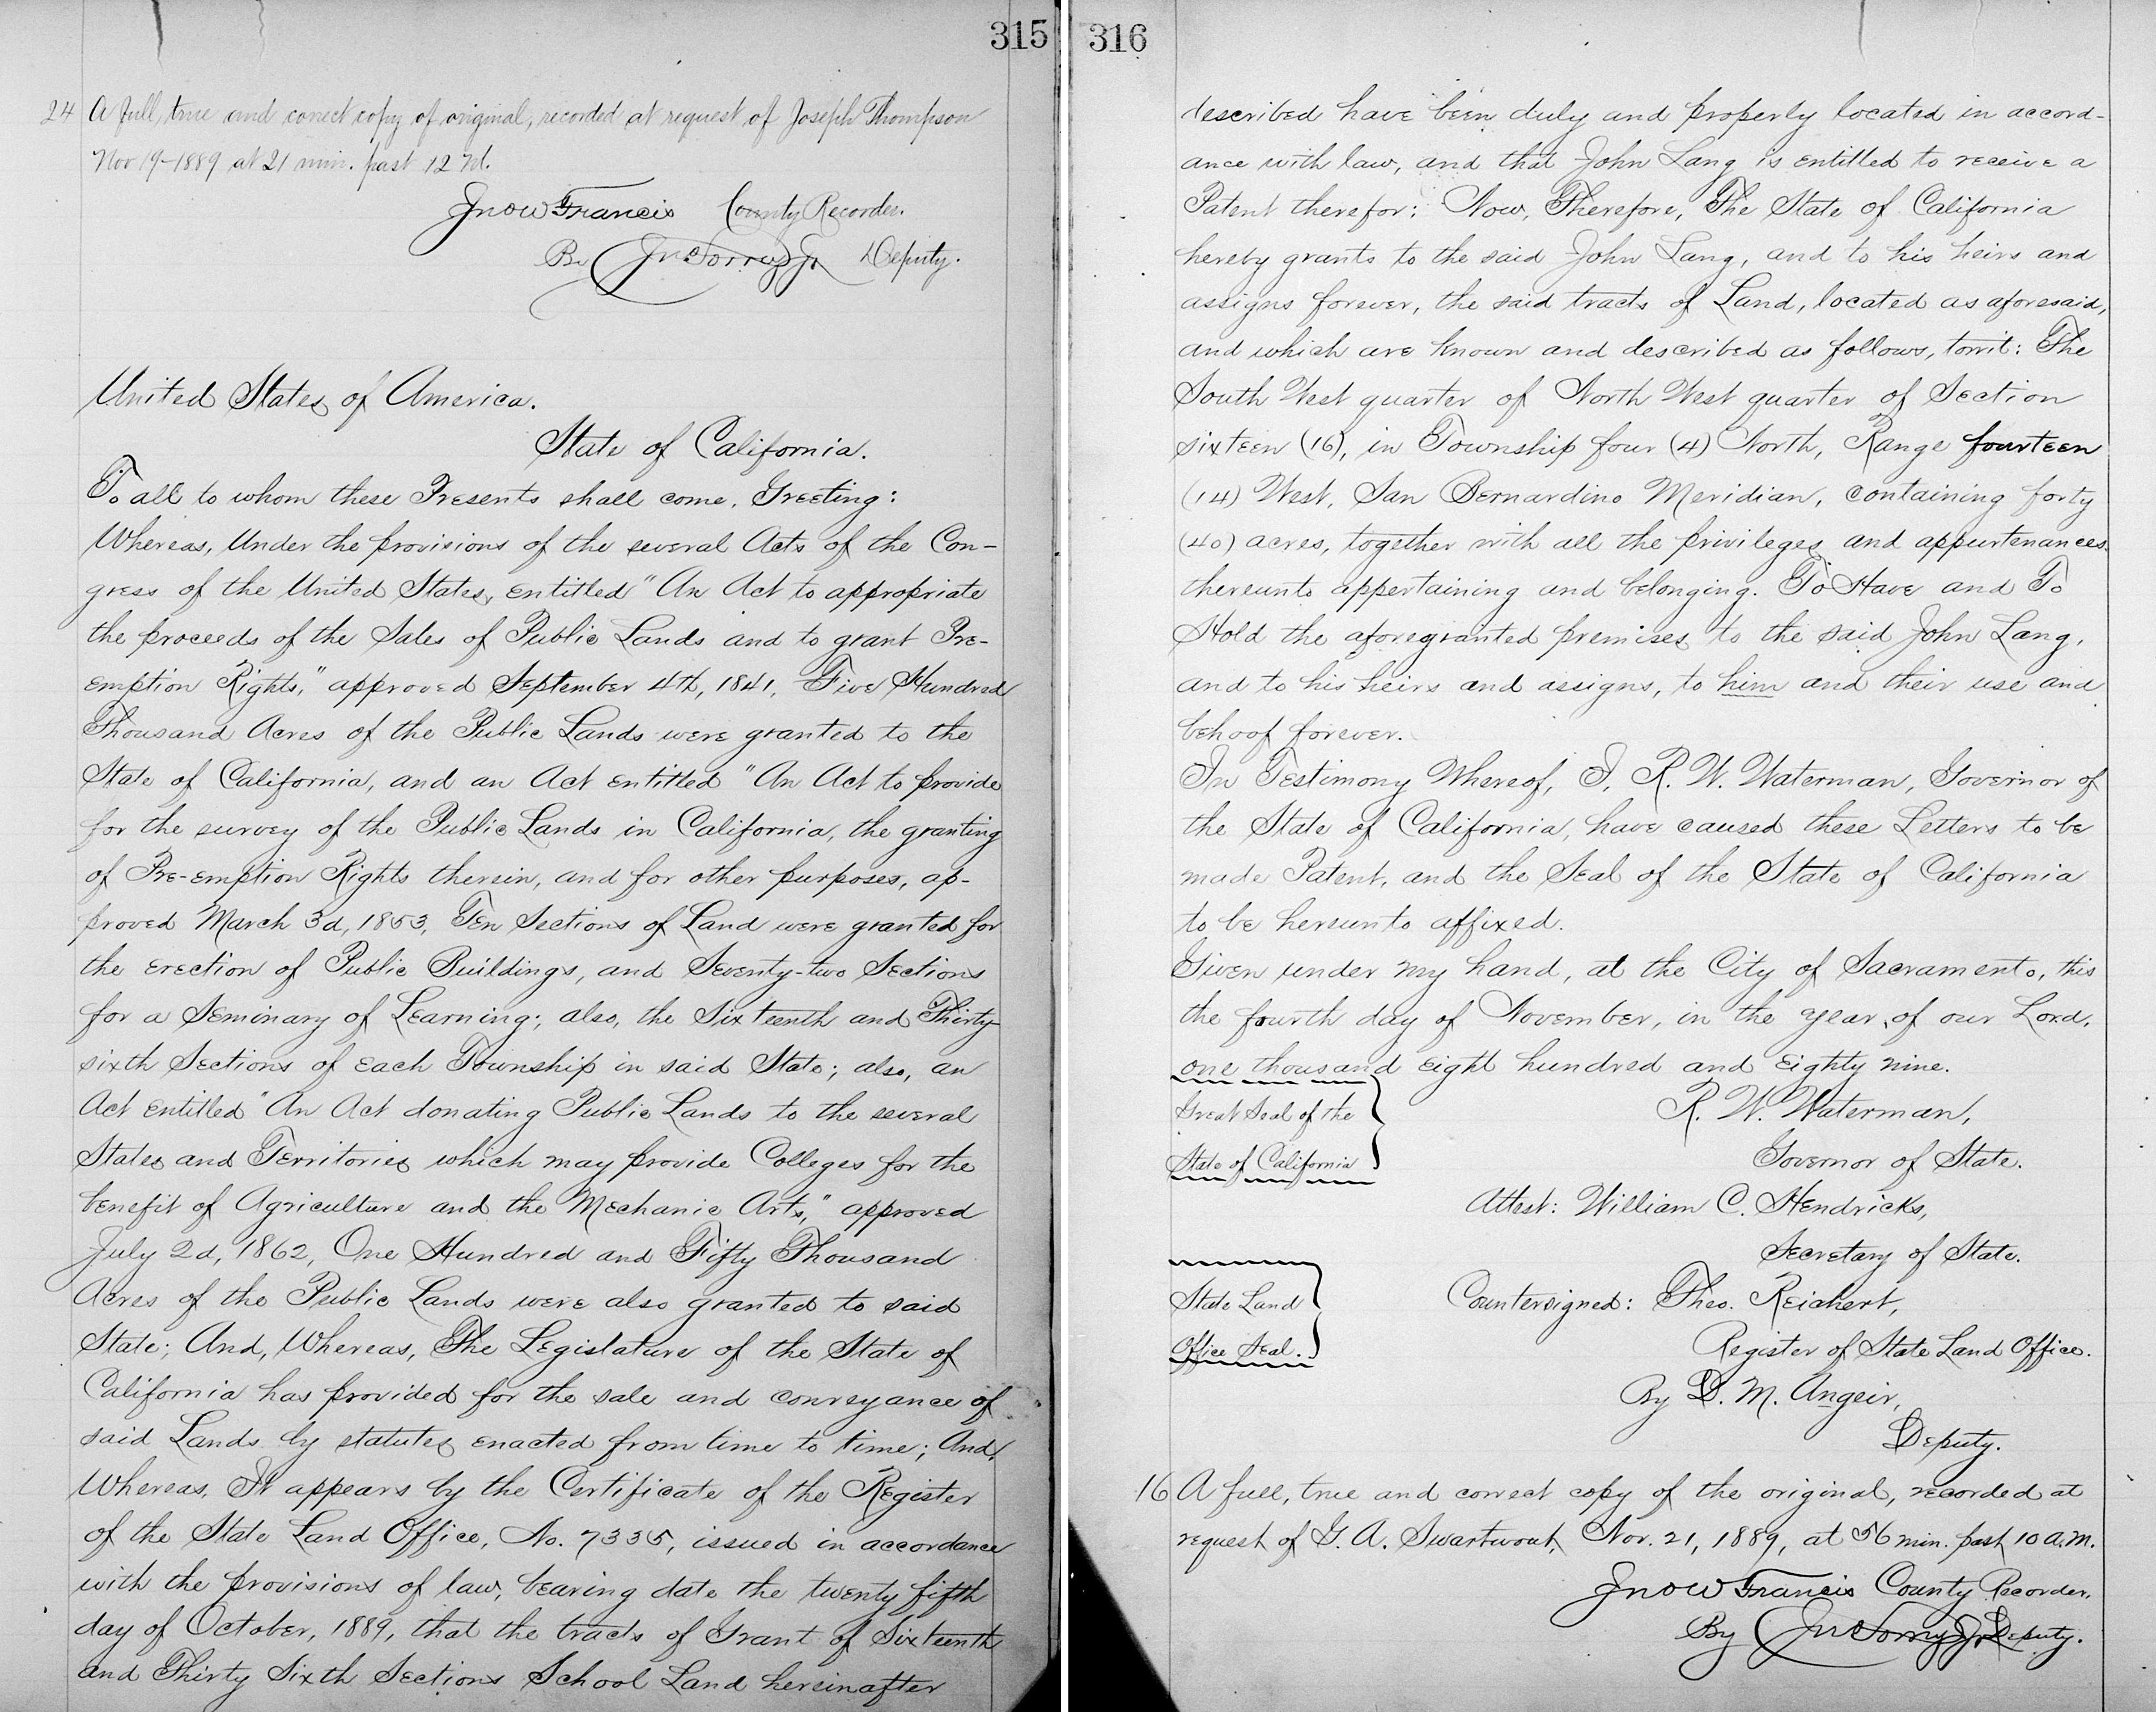 315
24 A full, true and correct copy of original, recorded at request of Joseph Thompson
Nov 19-1889 at 21 min. past 12 M.
Jno W Francis County Recorder.
By Deputy.
United States of America.
State of California.
To all to whom these Presents shall come, Greeting:
Whereas, Under the provisions of the several Acts of the Con-
gress of the United States, entitled "An Act to appropriate
the proceeds of the Sales of Public Lands and to grant Pre-
emption Rights," approved September 4th, 1841, Five Hundred
Thousand Acres of the Public Lands were granted to the
State of California, and an Act entitled "An Act to provide
for the survey of the Public Lands in California, the granting
of Pre-emption Rights therein, and for other purposes, ap-
proved March 3d, 1853, Ten Sections of Land were granted for
the erection of Public Buildings, and Seventy-two Sections
for a Seminary of Learning; also, the Sixteenth and Thirty-
sixth Sections of each Township in said State; also, an
Act entitled "An Act donating Public Lands to the several
States and Territories which may provide Colleges for the
benefit of Agriculture and the Mechanic Arts," approved
July 2d, 1862, One Hundred and Fifty Thousand
Acres of the Public Lands were also granted to said
State; And, Whereas, The Legislature of the State of
California has provided for the sale and conveyance of
said Lands by statutes enacted from time to time; And,
Whereas, It appears by the Certificate of the Register
of the State Land Office, No. 7335, issued in accordance
with the provisions of law, bearing date the twenty fifth
day of October, 1889, that the tracts of Grant of Sixteenth
and Thirty Sixth Sections School Land hereinafter
316
described have been duly and properly located in accord-
ance with law, and that John Lang is entitled to receive a
Patent therefor: Now, Therefore, The State of California
hereby grants to the said John Lang, and to his heirs and
assigns forever, the said tracts of Land, located as aforesaid,
and which are known and described as follows, towit: The
South West quarter of North West quarter of Section
sixteen (16), in Township four (4) North, Range fourteen
(14) West, San Bernardino Meridian, containing forty
(40) acres, together with all the privileges and appurtenances
thereunto appertaining and belonging. To Have and To
Hold the aforegranted premises to the said John Lang,
and to his heirs and assigns, to him and their use and
behoof forever.
In Testimony Whereof, I, R. W. Waterman, Governor of
the State of California, have caused these Letters to be
made Patent, and the Seal of the State of California
to be hereunto affixed.
Given under my hand, at the City of Sacramento, this
the fourth day of November, in the year of our Lord,
one thousand eight hundred and eighty nine.
Great Seal of the
State of California
R. W. Waterman,
Governor of State.
Attest: William C. Hendricks,
Secretary of State.
State Land
Office Seal.
Countersigned: Theo. Reichert,
Register of State Land Office.
By D. M. Angeir,
Deputy.
16 A full, true and correct copy of the original, recorded at
request of G. A. Swartwout, Nov. 21, 1889, at 56 min. past 10 A.M.
Jno W Francis County Recorder.
By Deputy.